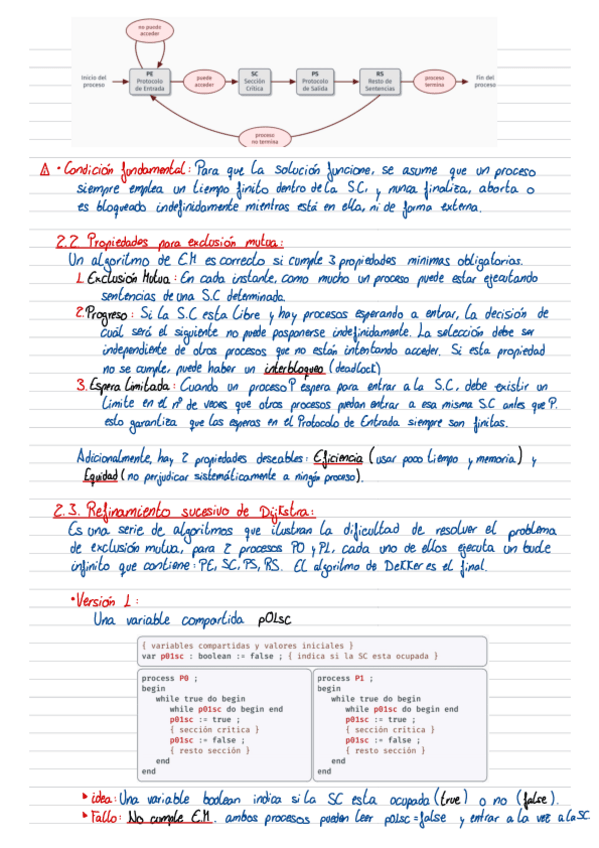 no puede
acceder
Inicio del
proceso
PE
Protocolo
de Entrada
puede
acceder
SC
Sección
Crítica
PS
Protocolo
de Salida
RS
Resto de
Sentencias
proceso
termina
Fin del
proceso
proceso
no termina
⚠ • Condición fundamental: Para que la solución funcione, se asume que un proceso
siempre emplea un tiempo finito dentro de la S.C, y nunca finaliza, aborta o
es bloqueado indefinidamente mientras está en ella, ni de forma externa.
2.2 Propiedades para exclusión mutua:
Un algoritmo de E.M es correcto si cumple 3 propiedades mínimas obligatorias.
1. Exclusión Mutua: En cada instante, como mucho un proceso puede estar ejecutando
sentencias de una S.C determinada.
2. Progreso: Si la S.C esta libre y hay procesos esperando a entrar, la decisión de
cuál será el siguiente no puede posponerse indefinidamente. La selección debe ser
independiente de otros procesos que no están intentando acceder. Si esta propiedad
no se cumple, puede haber un interbloqueo (deadlock)
3. Espera Limitada: Cuando un proceso P espera para entrar a la S.C, debe existir un
límite en el nº de veces que otros procesos puedan entrar a esa misma S.C antes que P.
esto garantiza que las esperas en el Protocolo de Entrada siempre son finitas.
Adicionalmente, hay 2 propiedades deseables: Eficiencia (usar poco tiempo y memoria) y
Equidad (no perjudicar sistemáticamente a ningún proceso).
2.3. Refinamiento sucesivo de Dijkstra:
Es una serie de algoritmos que ilustran la dificultad de resolver el problema
de exclusión mutua, para 2 procesos P0 y P1, cada uno de ellos ejecuta un bucle
infinito que contiene: PE, SC, PS, RS. El algoritmo de Dekker es el final.
• Versión 1:
Una variable compartida p01sc
{ variables compartidas y valores iniciales }
var p01sc : boolean := false ; { indica si la SC esta ocupada }
process P0 ;
begin
while true do begin
while p01sc do begin end
p01sc := true ;
{ sección crítica }
p01sc := false ;
{ resto sección }
end
end
process P1 ;
begin
while true do begin
while p01sc do begin end
p01sc := true ;
{ sección crítica }
p01sc := false ;
{ resto sección }
end
end
▸ idea: Una variable boolean indica si la SC esta ocupada (true) o no (false).
▸ Fallo: No cumple E.M. ambos procesos pueden leer p01sc=false y entrar a la vez a la SC.